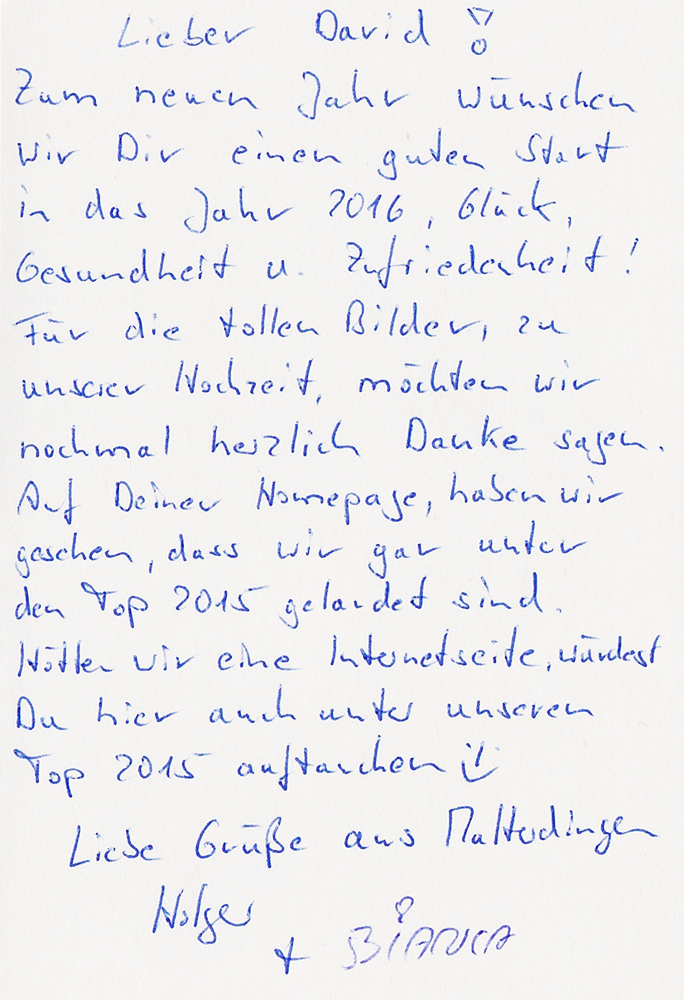 Lieber David !
Zum neuen Jahr wünschen
wir Dir einen guten Start
in das Jahr 2016, Glück,
Gesundheit u. Zufriedenheit!
Für die tollen Bilder, zu
unserer Hochzeit, möchten wir
nochmal herzlich Danke sagen.
Auf Deiner Homepage, haben wir
gesehen, dass wir gar unter
den Top 2015 gelandet sind.
Hätten wir eine Internetseite, würdest
Du hier auch unter unseren
Top 2015 auftauchen
Liebe Grüße aus Malterdingen
Holger
+ BIANCA